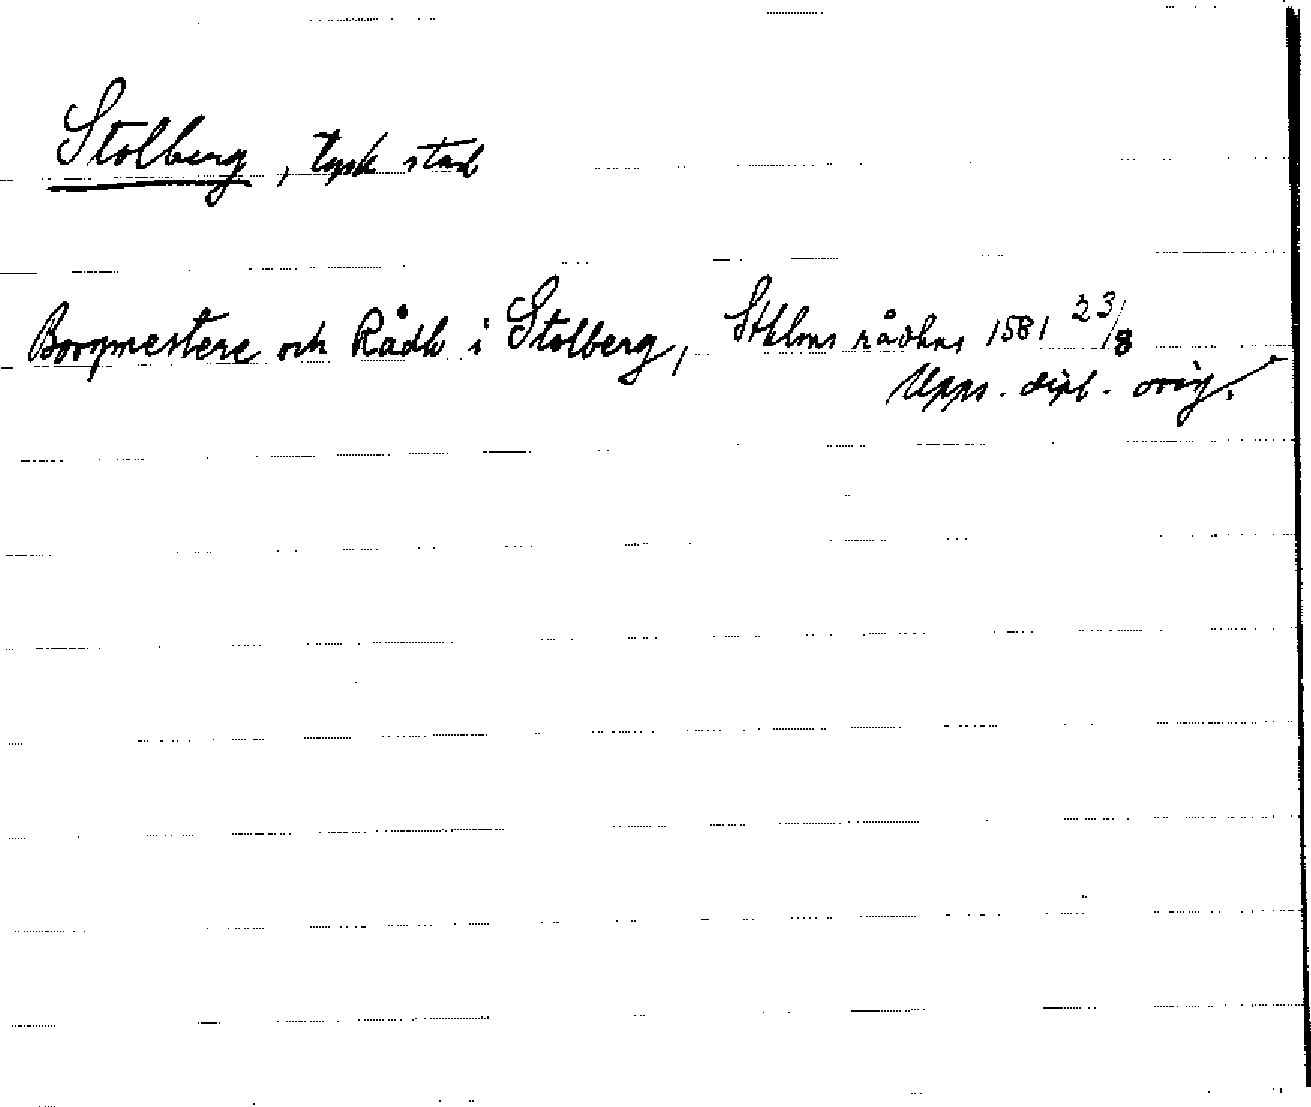 Stolberg, tysk stad
Borgmestere och Rådh i Stolberg, Sthlms rådhus 1581 23/8
Upps. dipl. orig.